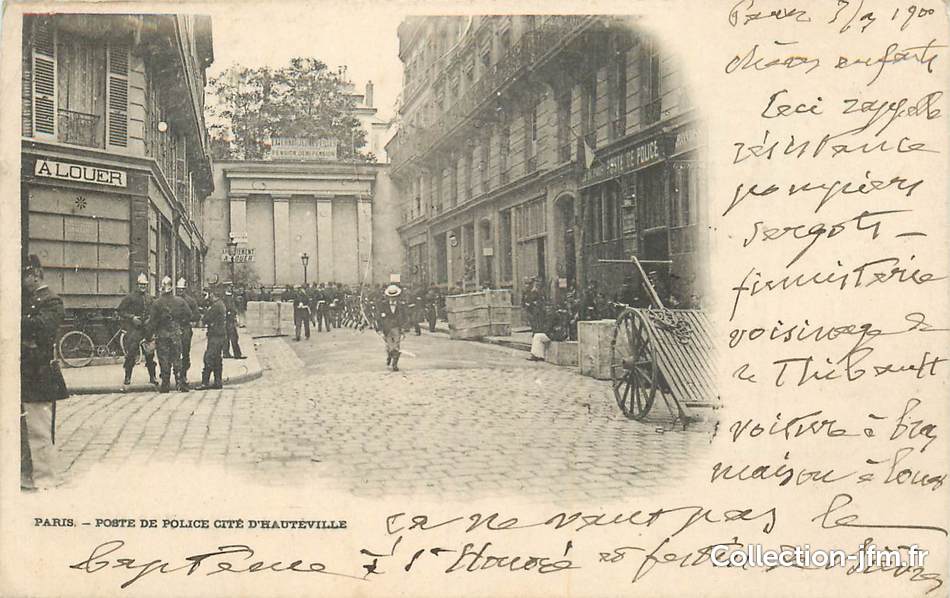 A LOUER
POSTE DE POLICE
A LOUER
PARIS. — POSTE DE POLICE CITÉ D'HAUTEVILLE
1900
chers enfants
Ceci rappelle
résistance
pompiers
sergots —
fumisterie
voisinage de
Thibault
voiture à bras
maison à louer
ça ne vaut pas le
baptême à St Honoré et festin
Collection-jfm.fr